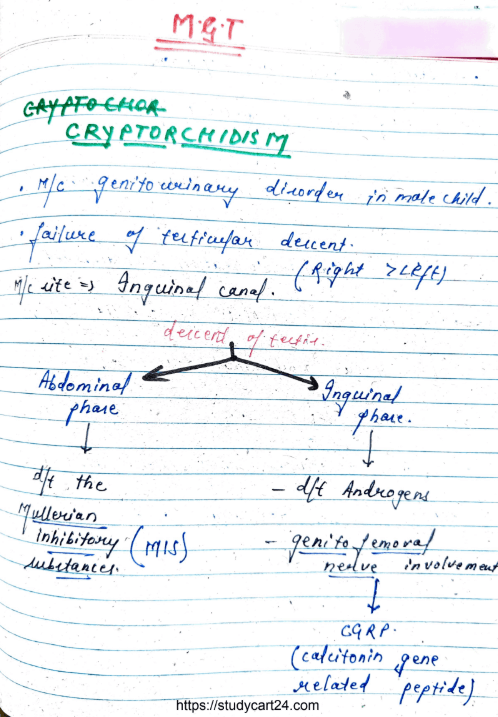 M.G.T
CRYPTOCHOR
CRYPTORCHIDISM
• M/c genitourinary disorder in male child.
• failure of testicular descent.
(Right > Left)
M/c site => Inguinal canal.
descent of testis.
Abdominal phase
Inguinal phase.
d/t the
Mullerian
inhibitory (MIS)
substances.
- d/t Androgens
- genito femoral
nerve involvement
CGRP.
(calcitonin gene
related peptide)
https://studycart24.com